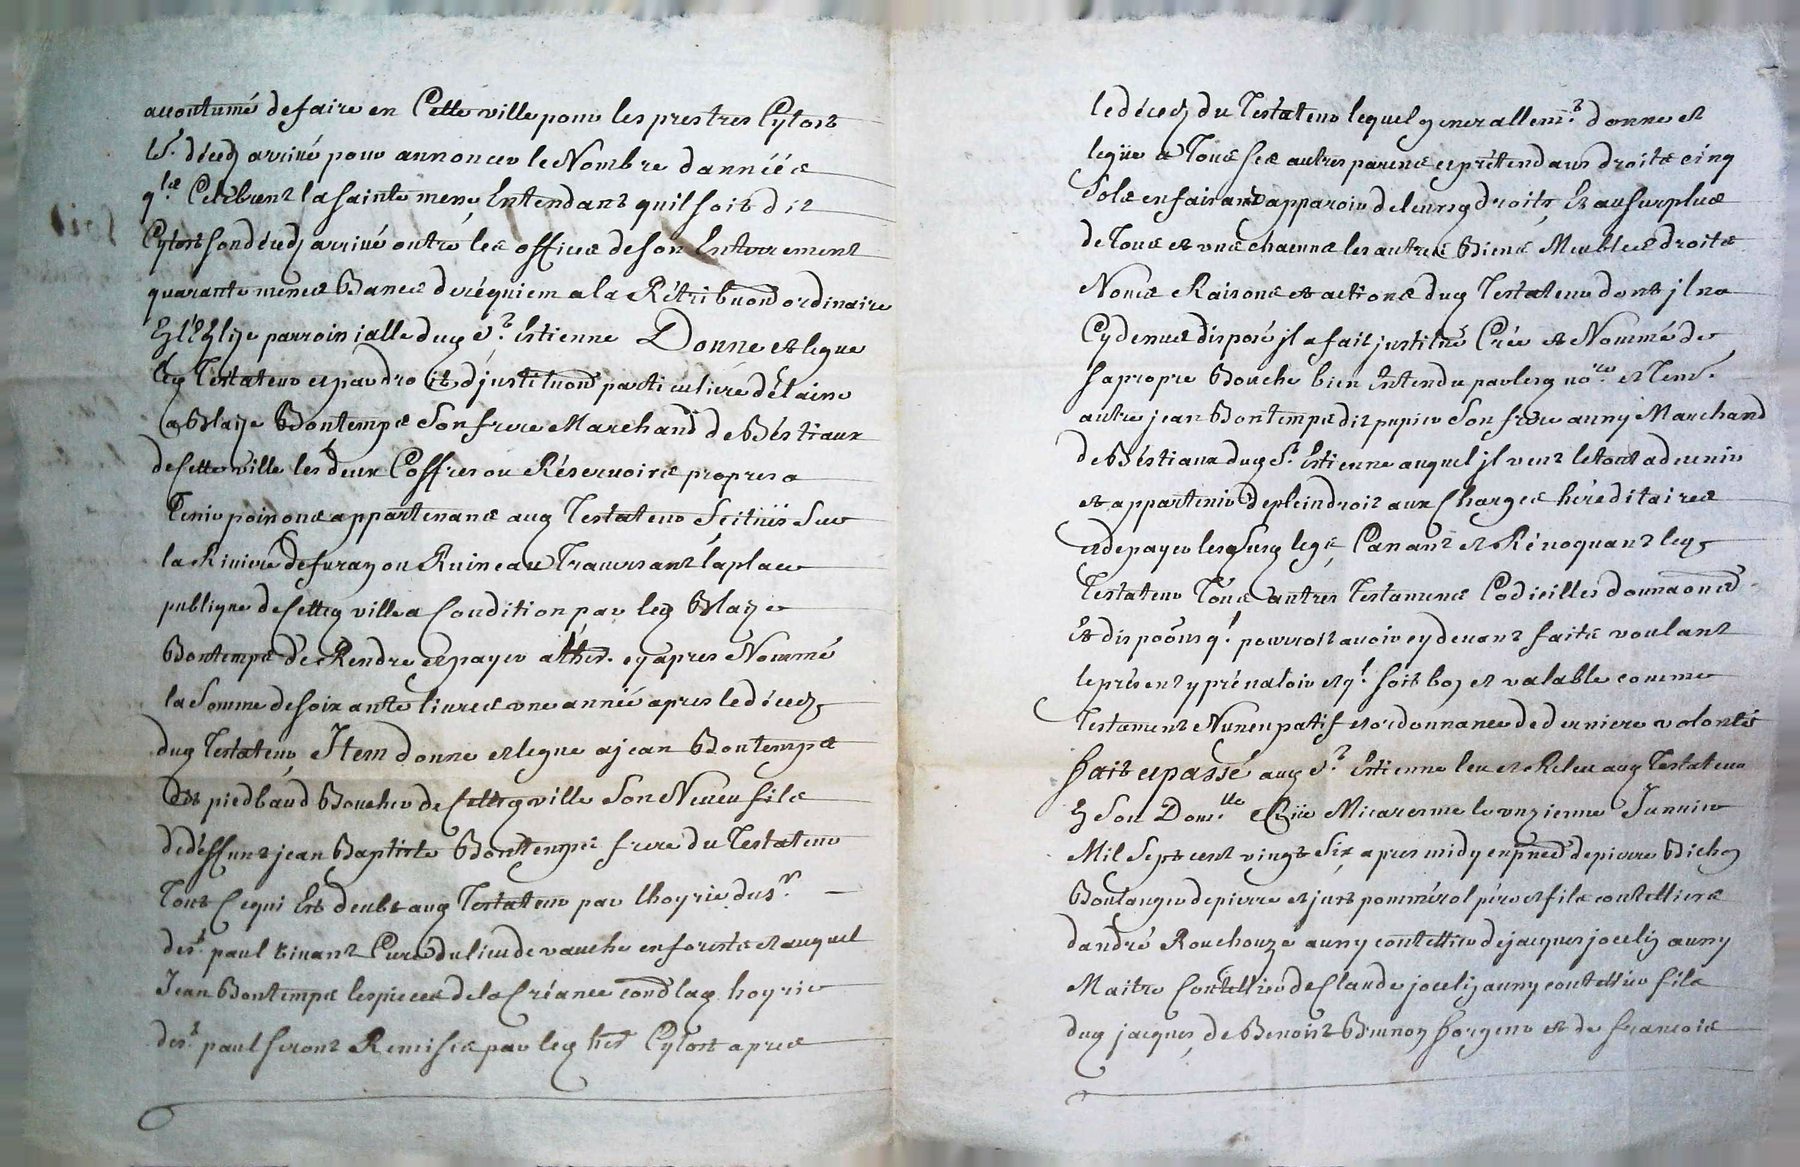 accoutumé de faire en Cette ville pour les prestres Cytost
led. décedz arrivé pour annoncer le Nombre dannééz
q.lz Celebrent la sainte messe, Entendant quil soit dit
Cytost son décedz arrivé outre les offices de son Enterrement
quarante messes Basses de réquiem a la Rétribuon ordinaire
En l'Eglize parroissialle dud. St. Estienne Donne et legue
led. Testateur et par droit d'justituon particuliere délaisse
a Blaize Bontemps Son frere Marchand de Béstiaux
de Cette ville les deux Coffres ou Réservoirs propres a
Tenir poissons appartenans aud. Testateur Scitués Sur
la Riviere de furan ou Ruisseau Traversant la place
publique de Cetted. ville a Condition par led. Blaize
Bontemps de Rendre et payer a lher. cy apres Nommé
la Somme de soixante livres une année apres le décedz
dud. Testateur, Item donne et legue a jean Bontemps
dit piedbaud Boucher de Cetted. ville Son Neveu fils
de déffunt jean Baptiste Bontemps frere du Testateur
Tout Ce qui Est deubt aud. Testateur par lhoyrie du Sr.
de St. paul vivant Curé du lieu de vauche en forests et auquel
Jean Bontemps les pieces de la Créance cond. lad. hoyrie
de St. paul seront Remises par led. her. Cytost apres
le décedz du Testateur lequel generallemt. donne et
legue a Tous ses autres parens et prétendans droits cinq
Sols en faisant apparoir de leursd. droits, Et au surplus
de Tous et uns chacuns les autres Biens Meubles droits
Noms Raisons et actions dud. Testateur dont jl na
Cydessus disposé jl a fait justitué Crée et Nommé de
sa propre Bouche bien Entendu par lesd. nore. et Tem.
autre jean Bontemps dit pupier Son frere aussy Marchand
de Béstiaux dud. St. Estienne auquel jl veut le tout advenir
et appartenir de plein droit aux Charges héréditaires
et de payer lesd. Susd. legs, Cassant et Révoquant led.
Testateur Tous autres Testamens Codicilles donnaons
Et dispoons q.l pourroit avoir cydevant faits voulant
le présent y prévaloir et q.l soit bon et valable comme
Testament Nuncupatif et ordonnance de derniere volonté
fait et passé aud. St. Estienne leu et Releu aud. Testateur
En Son Domlle. Rüe Micaresme le unzieme Janvier
Mil Sept cent vingt Six, apres midy en pnce. de pierre Bichon
Boulanger de pierre et just pommérol pere et fils coutelliers
dandré Rouchouze aussy coutellier de jacques jocelin aussy
Maitre Coutellier de Claude jocelin aussy coutellier fils
dud. jacques, de Benoist Brunon forgeur et de francois